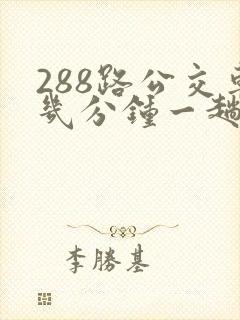 288路公交
幾分鐘一趟
李勝基